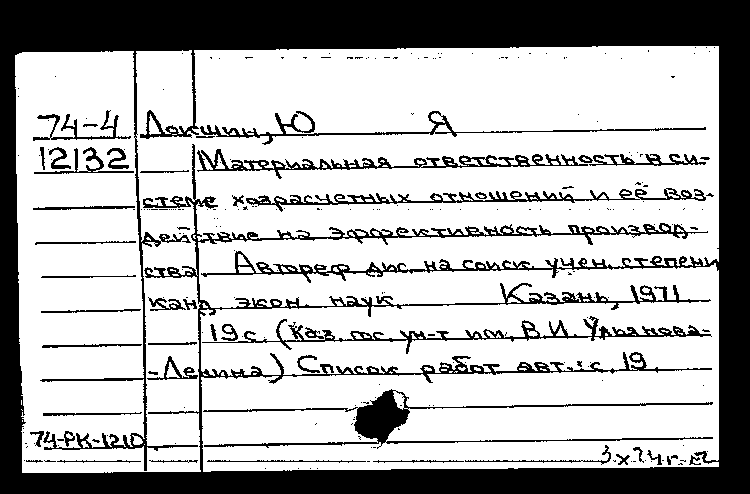 74-4 Локшин, Ю Я
12132 Материальная ответственность в си-
стеме хозрасчетных отношений и её воз-
действие на эффективность производ-
ства. Автореф. дис. на соиск. учен. степени
канд. экон. наук. Казань, 1971.
19 с. (Каз. гос. ун-т им. В.И. Ульянова-
-Ленина). Список работ авт.: с. 19.
74-РК-1210